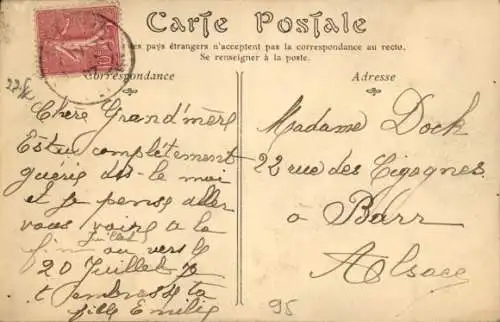 Carte Postale
es pays étrangers n'acceptent pas la correspondance au recto.
Se renseigner à la poste.
Correspondance
Chère Grand'mère
Es tu complètement
guérie dis-le moi
et je pense aller
vous voire a la
fin Juillet ou vers le
20 Juillet je
t'embrasse ta
fille Emilie
Adresse
Madame Dock
22 rue des Cigognes
à Barr
Alsace
95